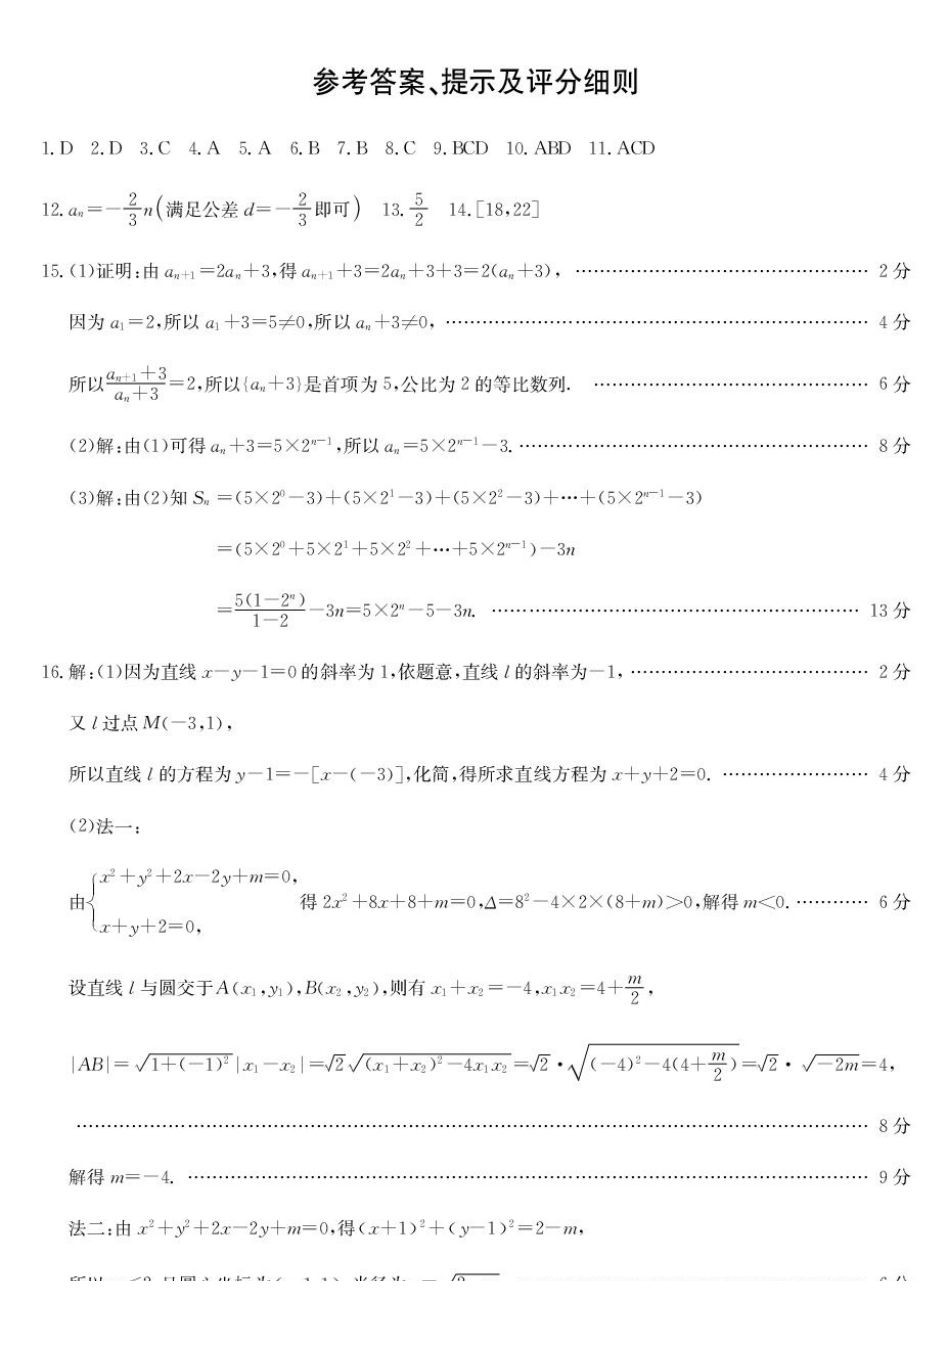 参考答案、提示及评分细则
1. D 2. D 3. C 4. A 5. A 6. B 7. B 8. C 9. BCD 10. ABD 11. ACD
12. aₙ=-2/3 n(满足公差 d=-2/3 即可) 13. 5/2 14. [18,22]
15. (1)证明:由 aₙ₊₁=2aₙ+3,得 aₙ₊₁+3=2aₙ+3+3=2(aₙ+3), …… 2 分
因为 a₁=2,所以 a₁+3=5≠0,所以 aₙ+3≠0, …… 4 分
所以 (aₙ₊₁+3)/(aₙ+3)=2,所以{aₙ+3}是首项为 5,公比为 2 的等比数列. …… 6 分
(2)解:由(1)可得 aₙ+3=5×2ⁿ⁻¹,所以 aₙ=5×2ⁿ⁻¹-3. …… 8 分
(3)解:由(2)知 Sₙ=(5×2⁰-3)+(5×2¹-3)+(5×2²-3)+…+(5×2ⁿ⁻¹-3)
=(5×2⁰+5×2¹+5×2²+…+5×2ⁿ⁻¹)-3n
=5(1-2ⁿ)/(1-2)-3n=5×2ⁿ-5-3n. …… 13 分
16. 解:(1)因为直线 x-y-1=0 的斜率为 1,依题意,直线 l 的斜率为-1, …… 2 分
又 l 过点 M(-3,1),
所以直线 l 的方程为 y-1=-[x-(-3)],化简,得所求直线方程为 x+y+2=0. …… 4 分
(2)法一:
由{x²+y²+2x-2y+m=0, x+y+2=0, 得 2x²+8x+8+m=0,Δ=8²-4×2×(8+m)>0,解得 m<0. …… 6 分
设直线 l 与圆交于 A(x₁,y₁),B(x₂,y₂),则有 x₁+x₂=-4,x₁x₂=4+m/2,
|AB|=√(1+(-1)²)|x₁-x₂|=√2√((x₁+x₂)²-4x₁x₂)=√2·√((-4)²-4(4+m/2))=√2·√(-2m)=4,
…… 8 分
解得 m=-4. …… 9 分
法二:由 x²+y²+2x-2y+m=0,得(x+1)²+(y-1)²=2-m,